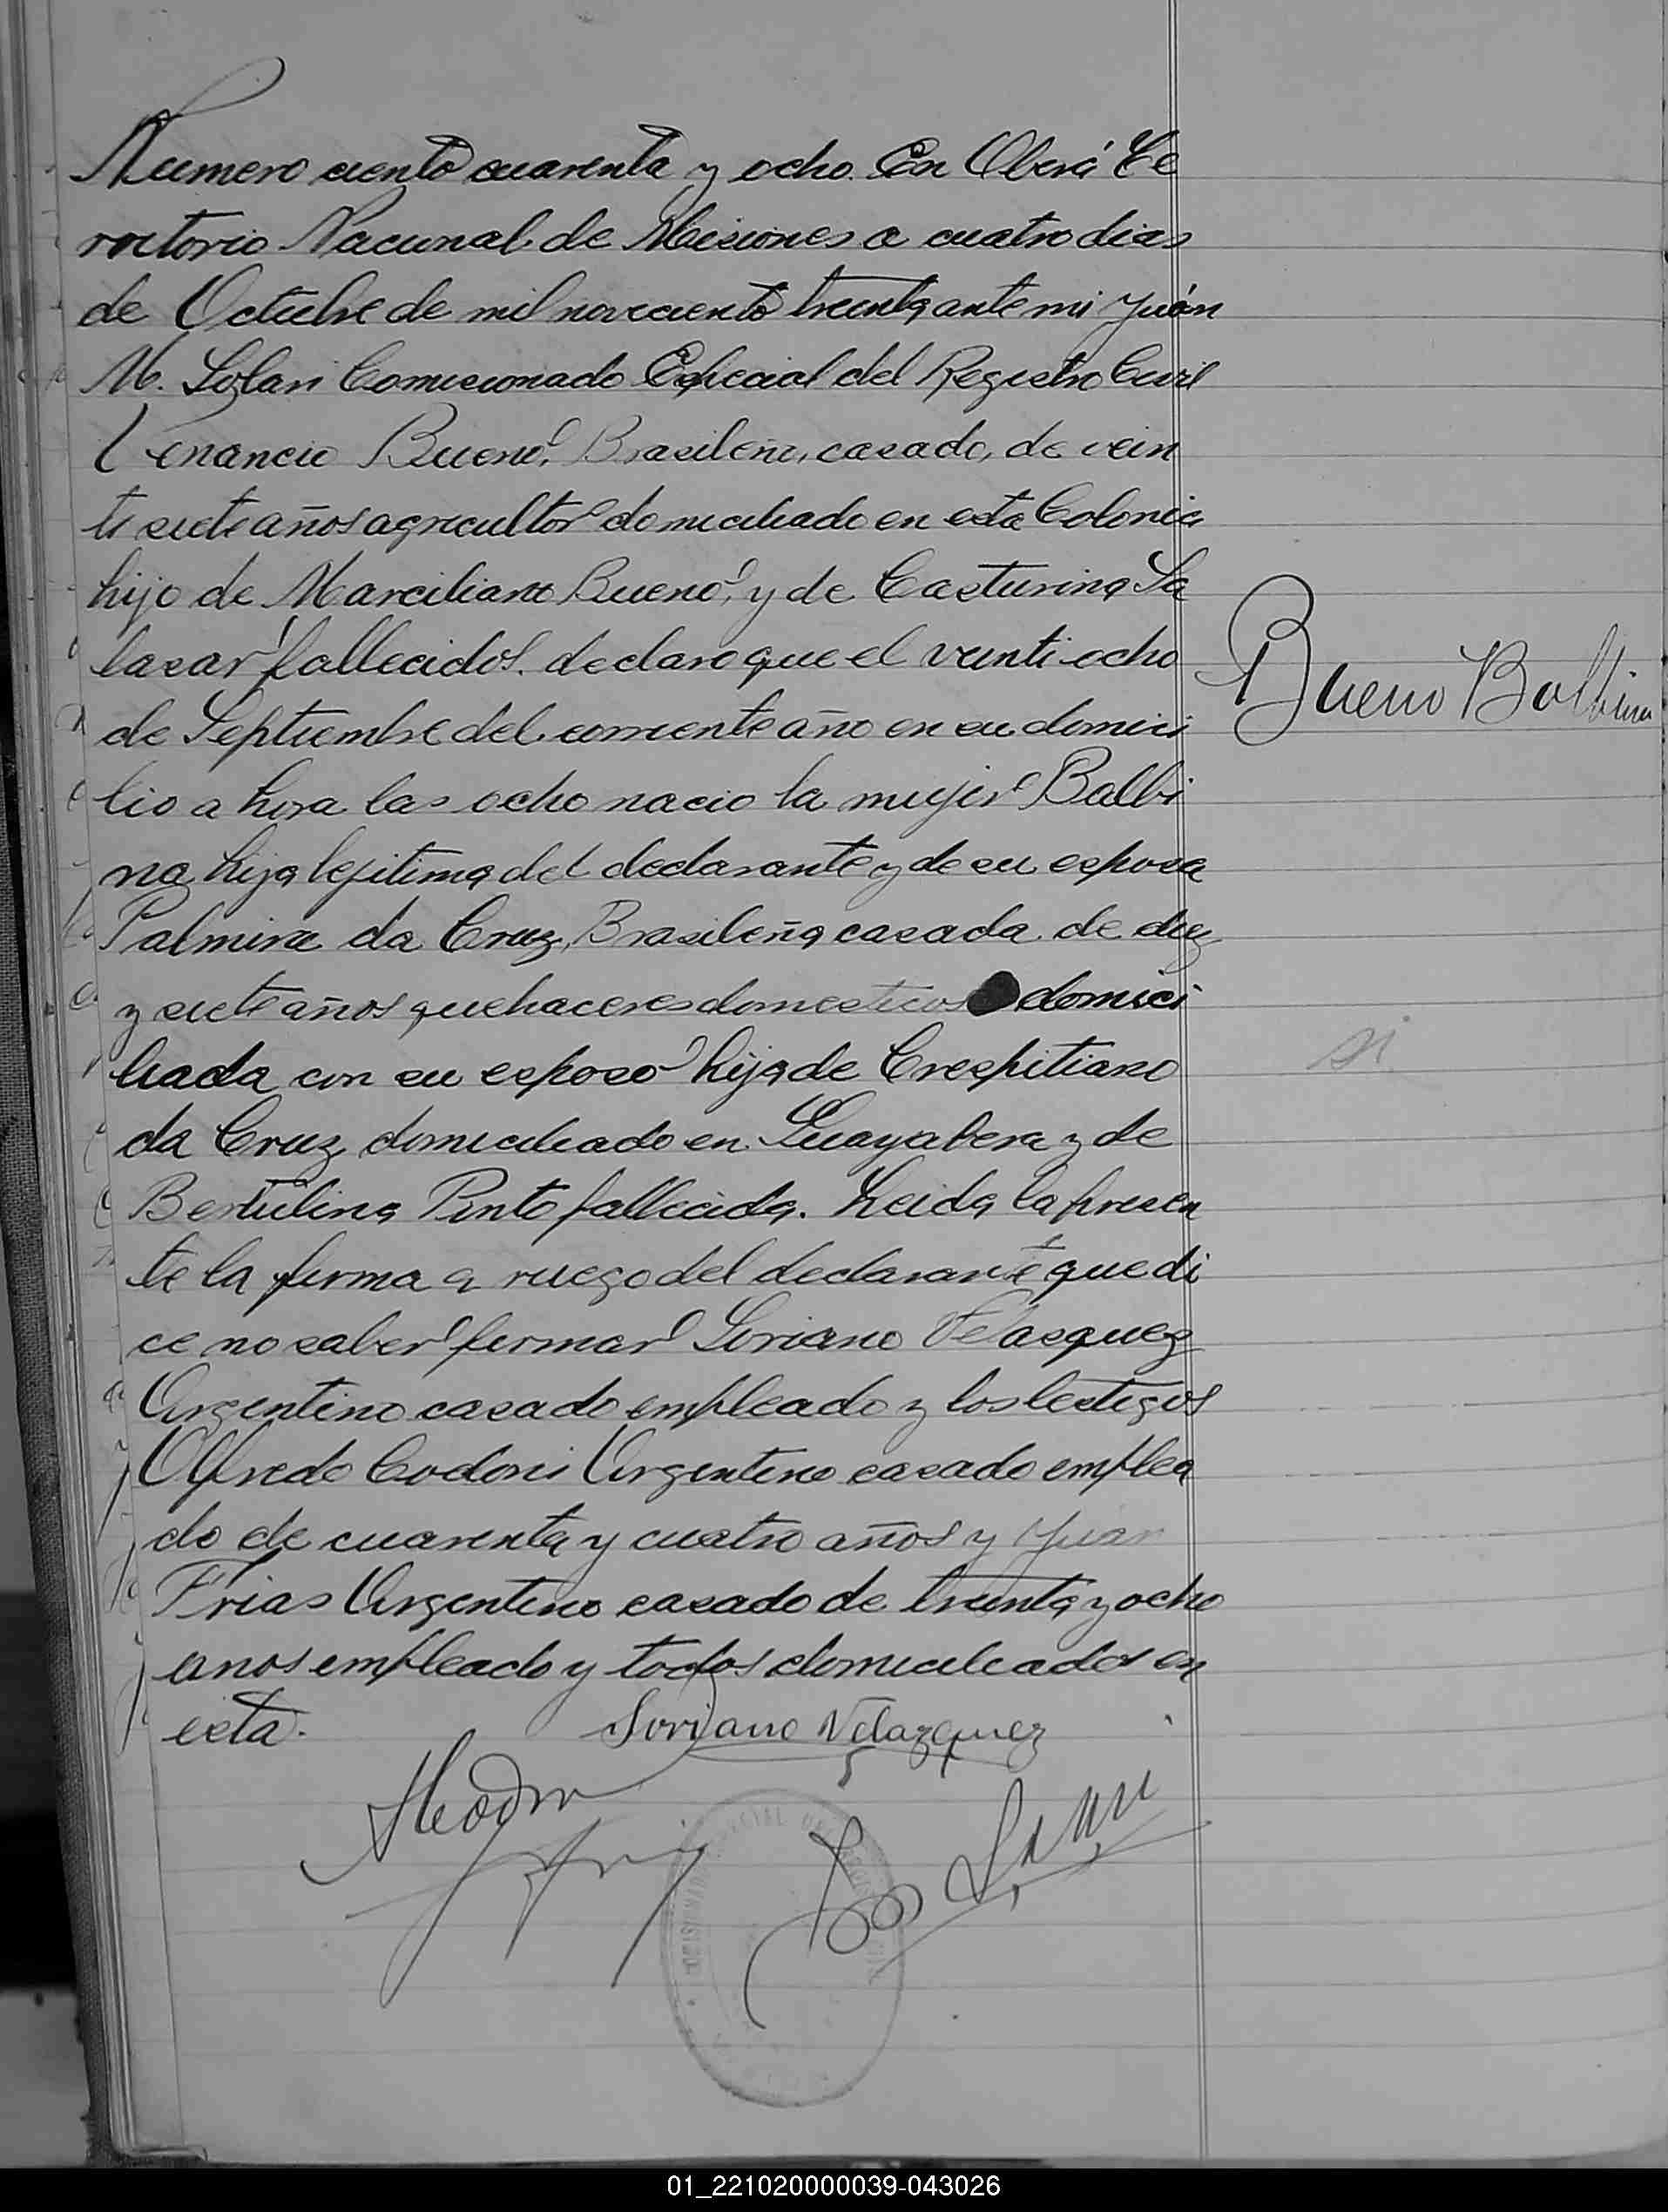 Numero ciento cuarenta y ocho. En Oberá Te
rritorio Nacional de Misiones a cuatro dias
de Octubre de mil noveciento treinta ante mi Juan
M. Solari Comisionado Especial del Registro Civil
Venancio Bueno, Brasileño, casado, de vein
ti siete años agricultor domiciliado en esta Colonia
hijo de Marciliano Bueno, y de Casturina Sa
lasar fallecidos. declaro que el veinti ocho
de Septiembre del corriente año en su domici
lio a hora las ocho nacio la mujer Balbi
na hija lejitima del declarante y de su esposa
Palmira da Cruz, Brasileña casada de diez
y siete años quehaceres domesticos domici
liada con su esposo hija de Crespitiano
da Cruz domiciliado en Guayabera y de
Bertulina Pinto fallecida. Leida la presen
te la firma a ruego del declarante que di
ce no saber firmar Soriano Velasquez
Argentino casado empleado y los testigos
Alfredo Codoni Argentino casado emplea
do de cuarenta y cuatro años y Juan
Frias Argentino casado de treinta y ocho
anos empleado y todos domiciliados en
esta.
Soriano Velazquez
Bueno Balbina
si
01_221020000039-043026